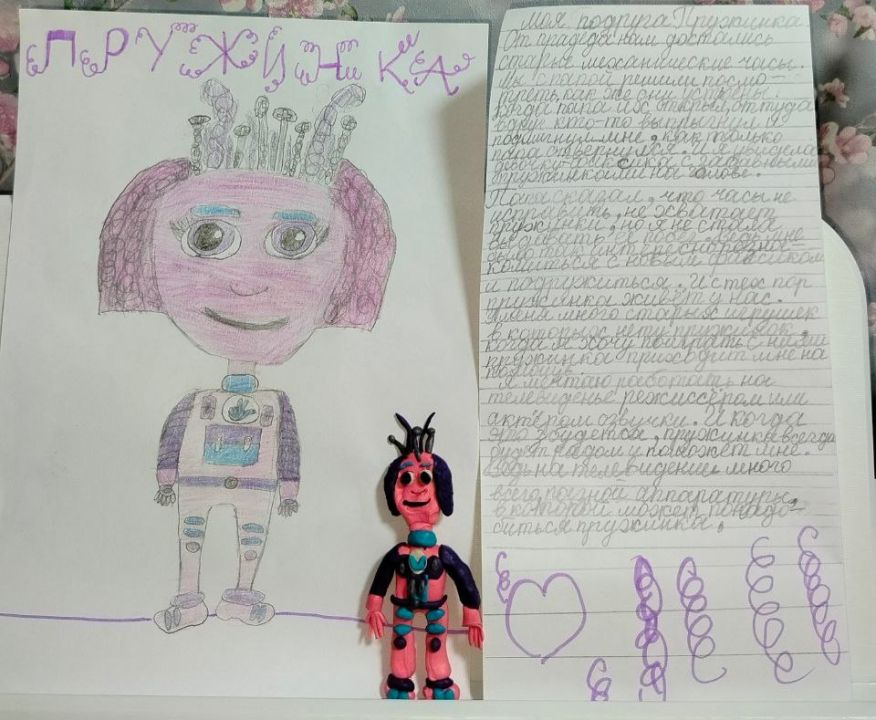 ПРУЖИНКА
Моя подруга Пружинка.
От прадеда нам достались
старые механические часы.
Мы с папой решили посмо-
треть, как же они устроены.
Когда папа их открыл, оттуда
вдруг кто-то выпрыгнул и
подмигнул мне, как только
папа отвернулся. И я увидела
с забавными
пружинками на голове.
Папа сказал, что часы не
исправить, не хватает
пружинки, но я не стала
было
комиться с новым фиксиком
и подружиться. И с тех пор
пружинка живёт у нас.
У меня много старых игрушек
в которых нет пружинок.
Когда я хочу поиграть с ними
пружинка приходит мне на
помощь.
Я мечтаю работать на
телевиденье режиссёром или
актёром озвучки. И когда
это сбудется, пружинка всегда
будет рядом и поможет мне.
Ведь на телевидение много
всего разной аппаратуры,
в которой может понадо-
биться пружинка.